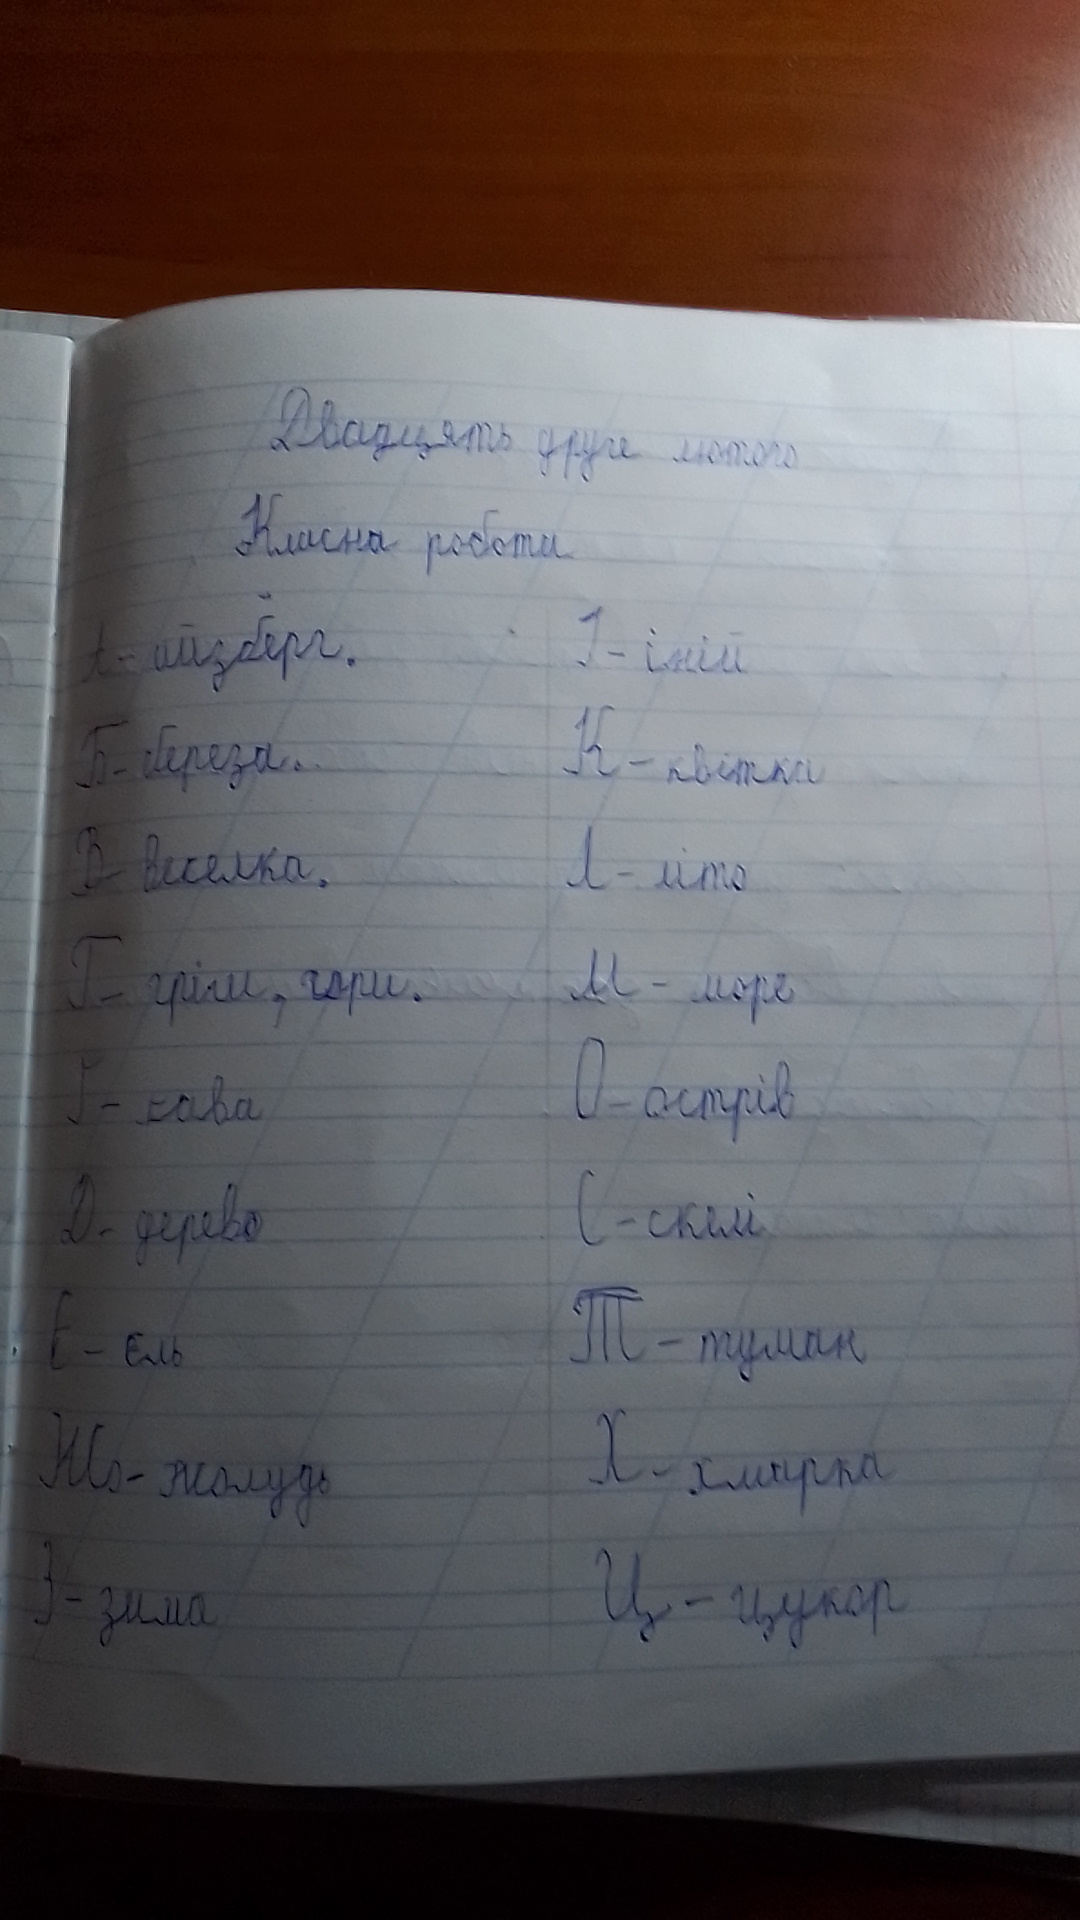 Двадцять друге лютого
Класна робота
А - айзберг.
Б - береза.
В - веселка.
Г - гріги, гори.
Ґ - ґава
Д - дерево
Є - єль
Ж - жолудь
З - зима
І - іній
К - квітка
Л - літо
М - море
О - острів
С - скелі
Т - туман
Х - хмарка
Ц - цукор